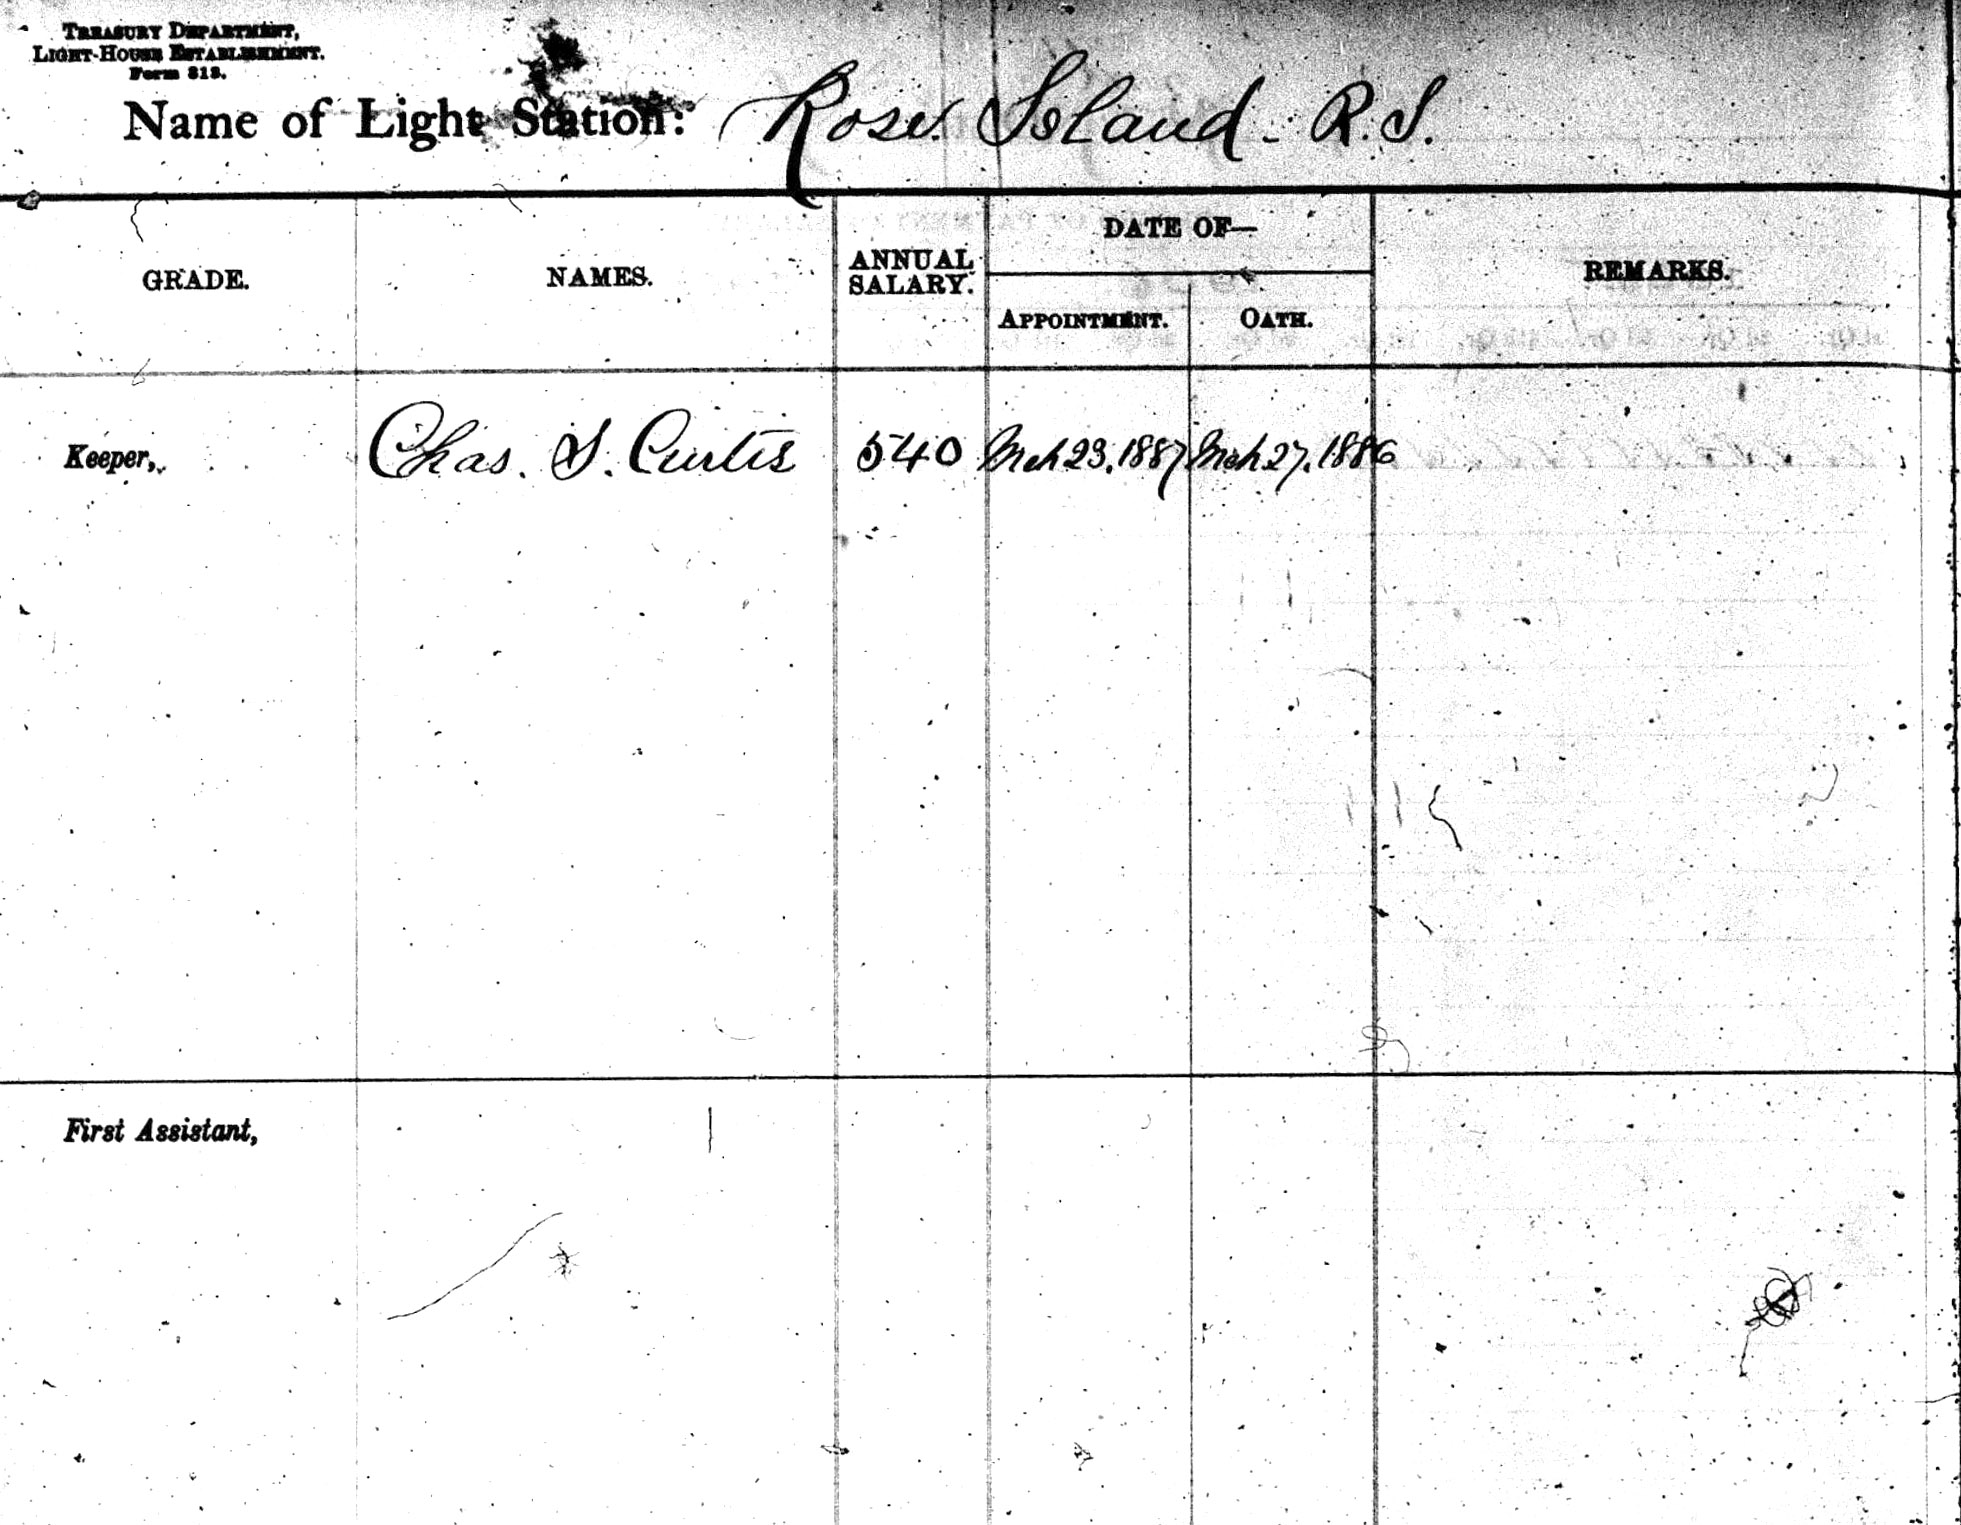 TREASURY DEPARTMENT,
LIGHT-HOUSE ESTABLISHMENT.
Form 313.
Name of Light Station: Rose Island. R.I.
GRADE. NAMES. ANNUAL SALARY. DATE OF— REMARKS.
APPOINTMENT. OATH.
Keeper, Chas. S. Curtis 540 Mch 23, 1887 Mch 27, 1886
First Assistant,